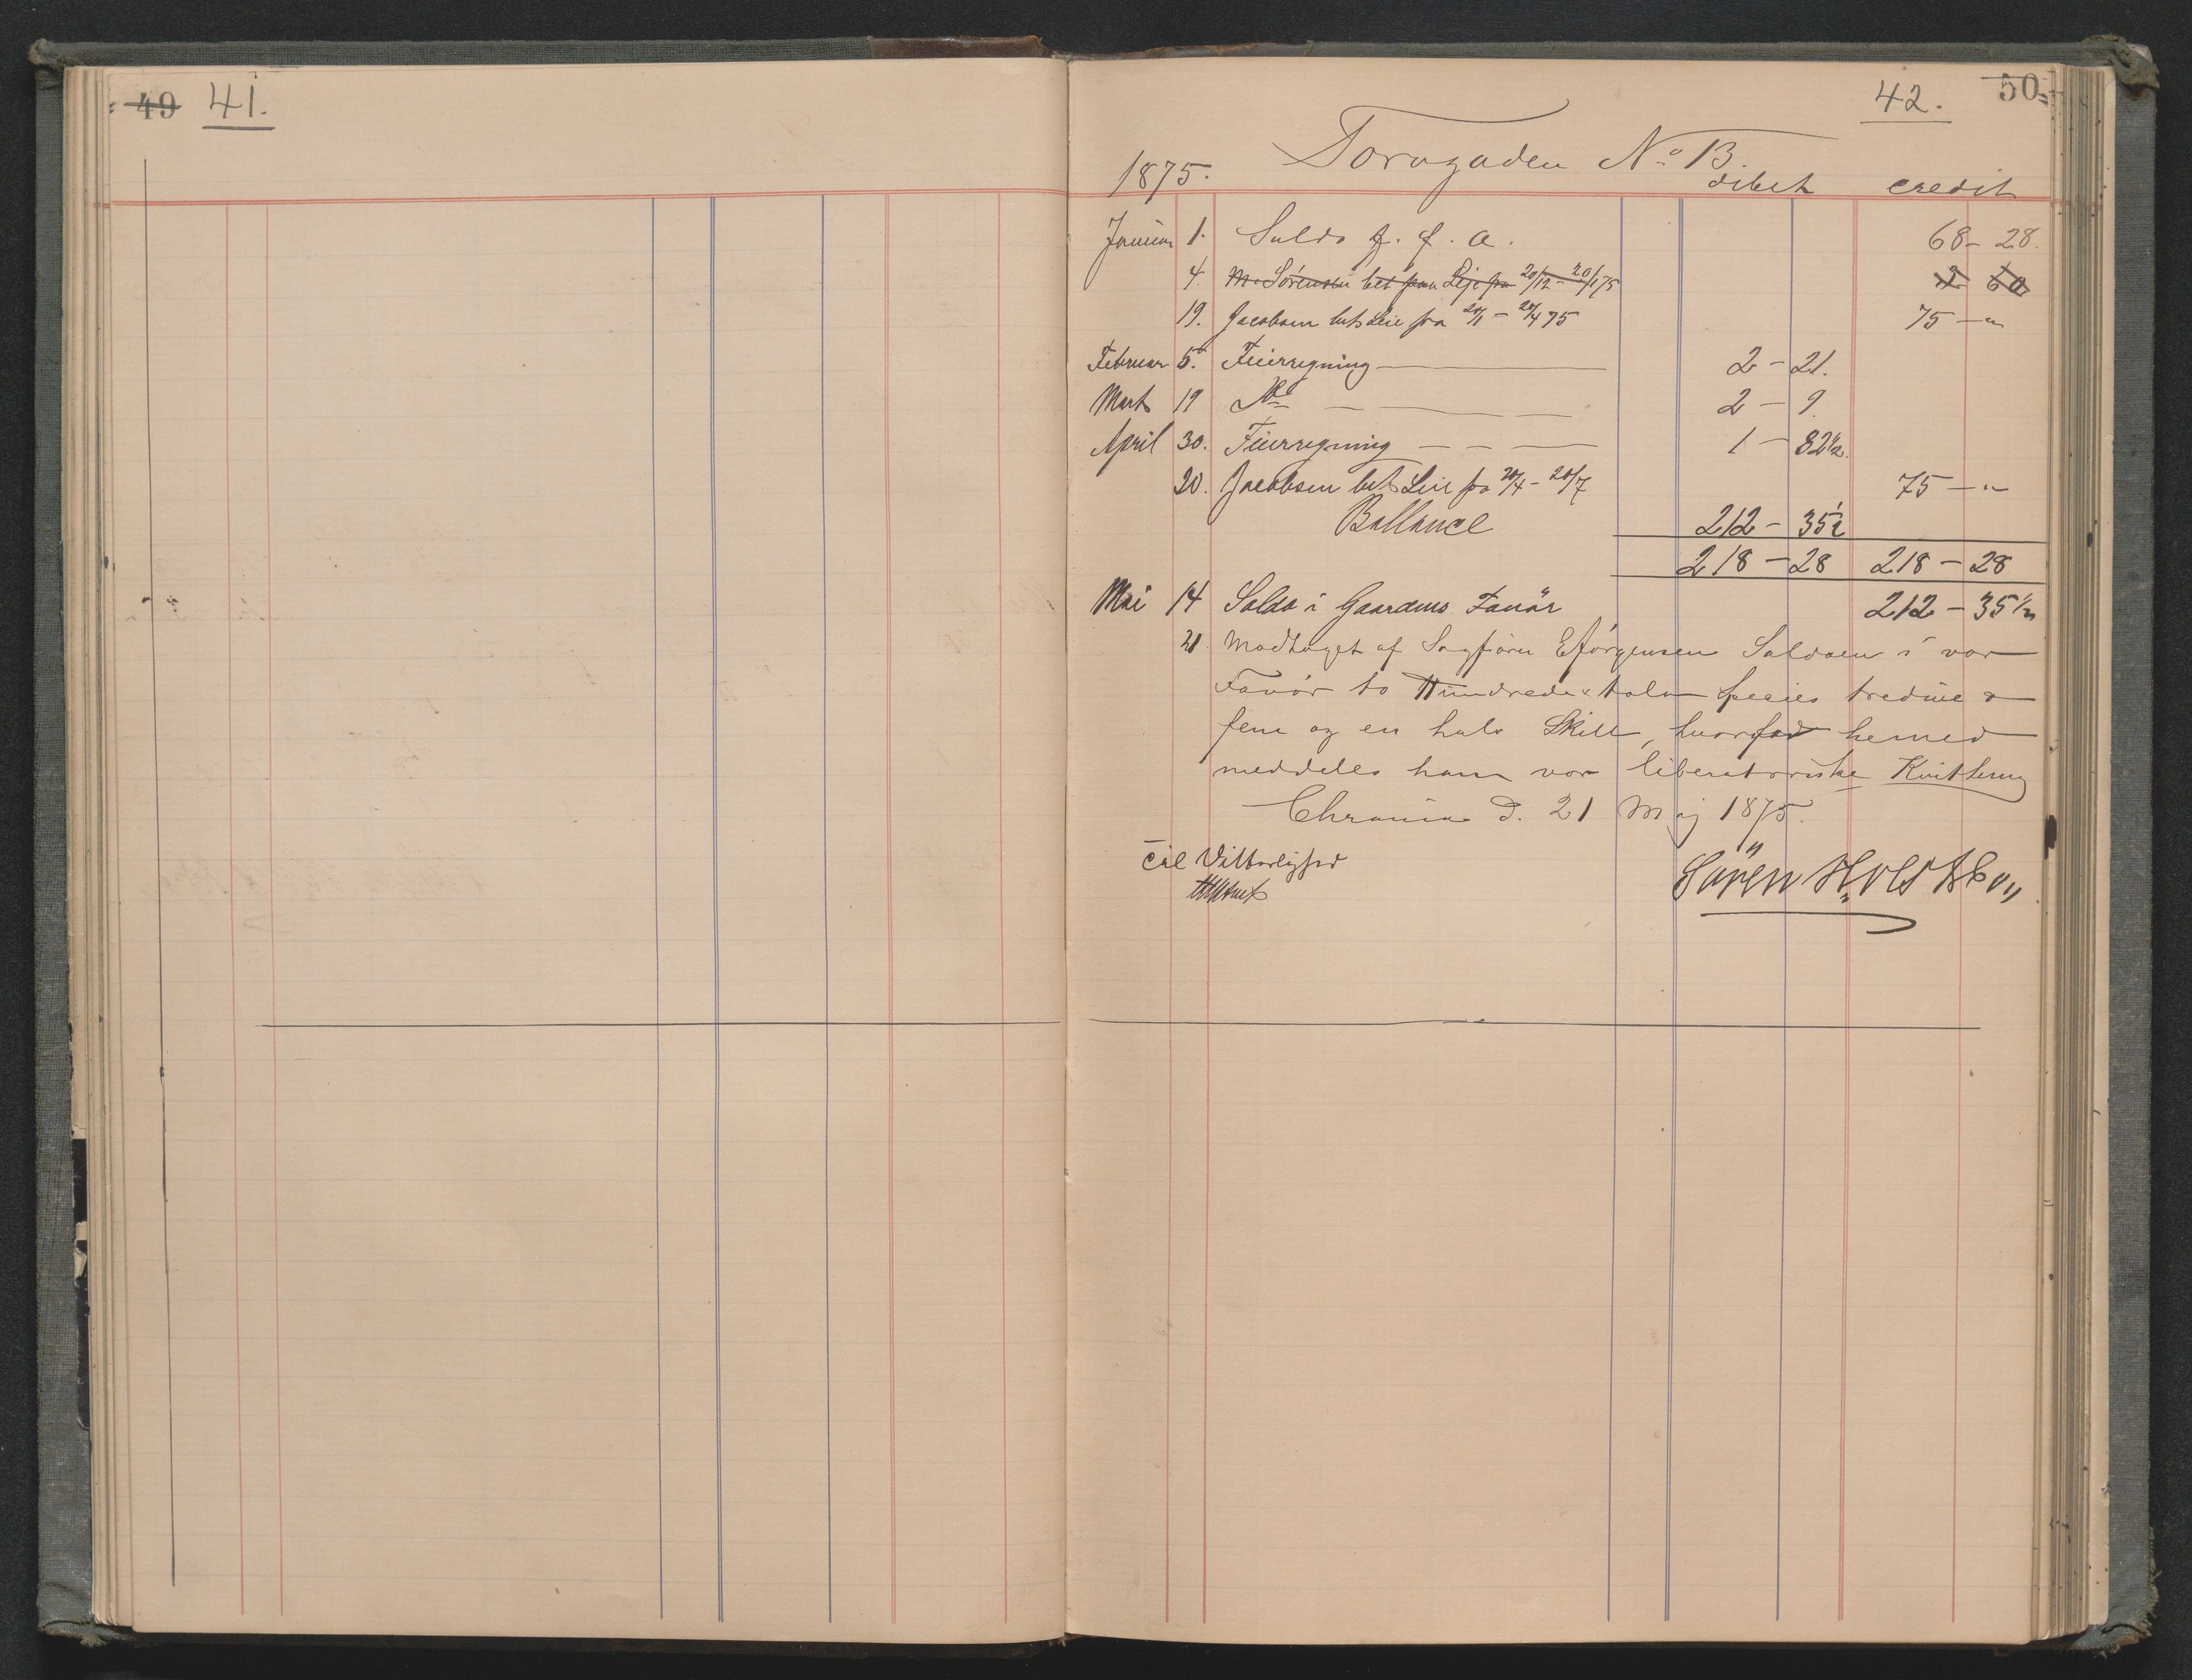 49 41.
42. 50
Torvgaden No 13.
1875. debet credit
Januar 1. Saldo f. f. A. 68 - 28.
4. M. Sörensen bet paa Leje fra 20/12 - 20/1 75 2 60
19. Jacobsen bet Leie fra 20/1 - 20/4 75 75 - "
Februar 5. Feierregning 2 - 21.
Marts 19 Do 2 - 9
April 30. Feierregning 1 - 82½.
20. Jacobsen bet Leie fra 20/4 - 20/7 75 - "
Ballance 212 - 35½
218 - 28 218 - 28
Mai 14 Saldo i Gaardens Favör 212 - 35½
21. Modtaget af Sagfører E Jörgensen Saldoen i vor
Favör to Hundrede & tolv Species tredive &
fem og en halv Skill, hvorfor hermed
meddeles ham vor liberatoriske Kvittering
Chrania d. 21 Maj 1875.
Til Vitterlighed
Sören